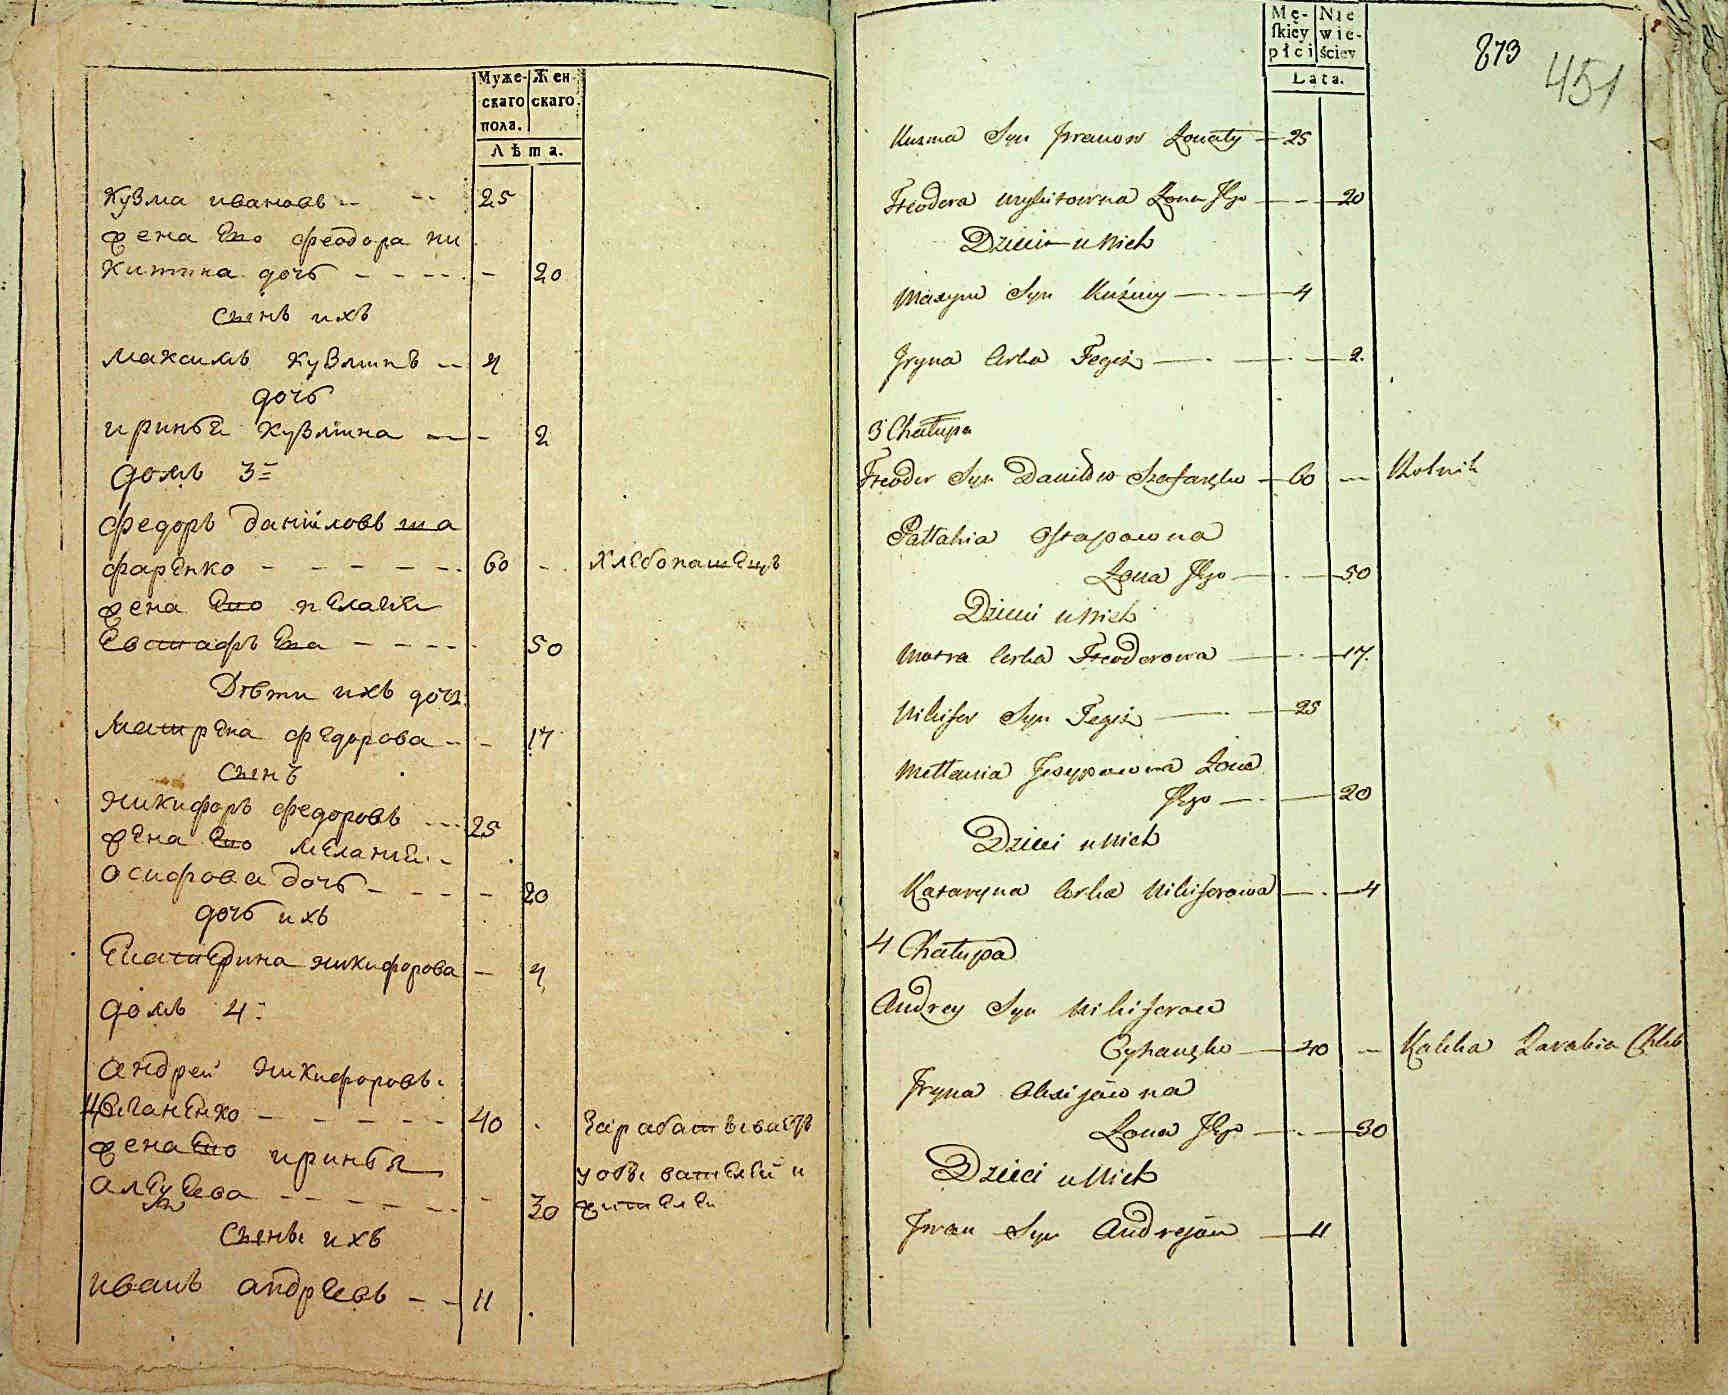 Муже-
скаго
пола.
Жен-
скаго.
Лѣта.
Кузма ивановъ - - - 25
жена Ево феодора ни
китина дочь - - - - - 20
сынъ ихъ
максимъ кузминъ - - 4
дочь
иринья кузмина - - - 2
домъ 3=
федоръ даниловъ ша
фаренко - - - - - - 60 - хлебопашецъ
жена Ево пелагия
Евстафьева - - - - - 50
Дѣти ихъ дочь
матрена федорова - - - 17
сынъ
никифоръ федоровъ - - - 25
жена Ево мелания -
осифова дочь - - - - 20
дочь ихъ
Екатерина никифорова - 4
домъ 4:
андрей никифоровъ
цыганенко - - - - - - 40 зарабатываетъ
жена Ево иринья у обывателей и
алексеева - - - - - - 30 жителей
сыны ихъ
иванъ андреевъ - - 11
Mę-
skiey
płci
Nie
wie-
ściey
Lata.
873
451
Kuzma Syn Iwanow Żonaty — 25
Fteodora Mykitowna Żona Jego — - — 20
Dzieci u Nich
Maxym Syn Kuźmy — - — 4
Iryna Corka Tegoż — - — - — 2
3 Chałupa
Fteodor Syn Daniłow Szafaręko — 60 — Rolnik
Pałłahia Ostapowna
Żona Jego — - — 50
Dzieci u Nich
Motra Corka Fteodorowa — - — 17.
Nikifor Syn Tegoż — - — 25
Mełłania Josypowna Żona
Jego — - — 20
Dzieci u Nich
Kataryna Corka Nikiforowa — - — 4
4 Chałupa
Andrey Syn Nikiforow
Cyhanęko — 40 — Kalika Zarabia Chleb
Iryna Alexijowna
Żona Jego — - — 30
Dzieci u Nich
Iwan Syn Andrejów — 11